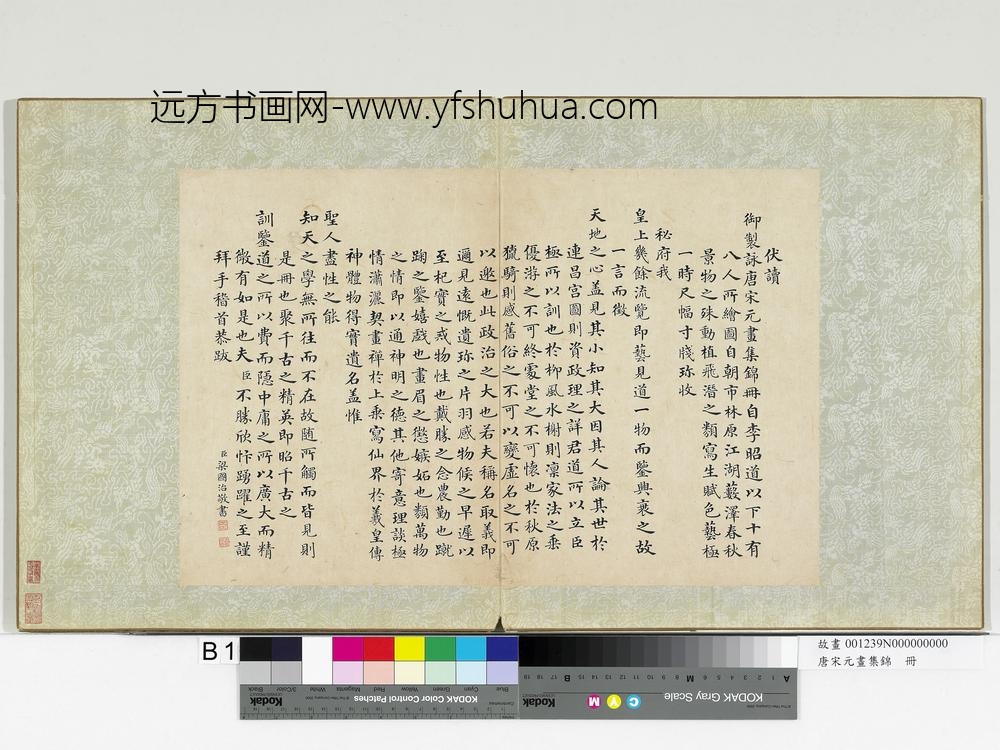 远方书画网-www.yfshuhua.com
伏讀
御製詠唐宋元畫集錦冊自李昭道以下十有
八人所繪圖自朝市林原江湖藪澤春秋
景物之殊動植飛潛之類寫生賦色藝極
一時尺幅寸牋珎收
秘府我
皇上幾餘流覽即藝見道一物而鑒興衰之故
一言而徵
天地之心盖見其小知其大因其人論其世於
連昌宮圖則資政理之詳君道所以立臣
極所以訓也於柳風水榭則凜家法之乗
優游之不可終處堂之不可懷也於秋原
獵騎則感舊俗之不可以變虛名之不可
以邀也此政治之大也若夫稱名取義即
邇見遠慨遺珎之片羽感物候之早遲以
至杞實之戒物性也戴勝之念農勤也蹴
踘之鑒嬉戲也畫眉之懲嫉妬也類萬物
之情即以通神明之德其他寄意理談極
情瀟灑契畫禪於上乗寫仙界於羲皇傳
神體物得實遺名盖惟
聖人盡性之能
知天之學無所往而不在故随所觸而皆見則
是冊也聚千古之精英即昭千古之
訓鑒道之所以費而隱中庸之所以廣大而精
微有如是也夫臣不勝欣忭踴躍之至謹
拜手稽首恭跋
臣梁國治敬書
B 1
故畫 001239N000000000
唐宋元畫集錦 冊
KODAK Color Control Patches
Kodak
Blue Cyan Green Yellow Red Magenta White 3/Color Black
KODAK Gray Scale
Kodak
C Y M
A 1 2 3 4 5 6 M 8 9 10 11 12 13 14 15 B 17 18 19